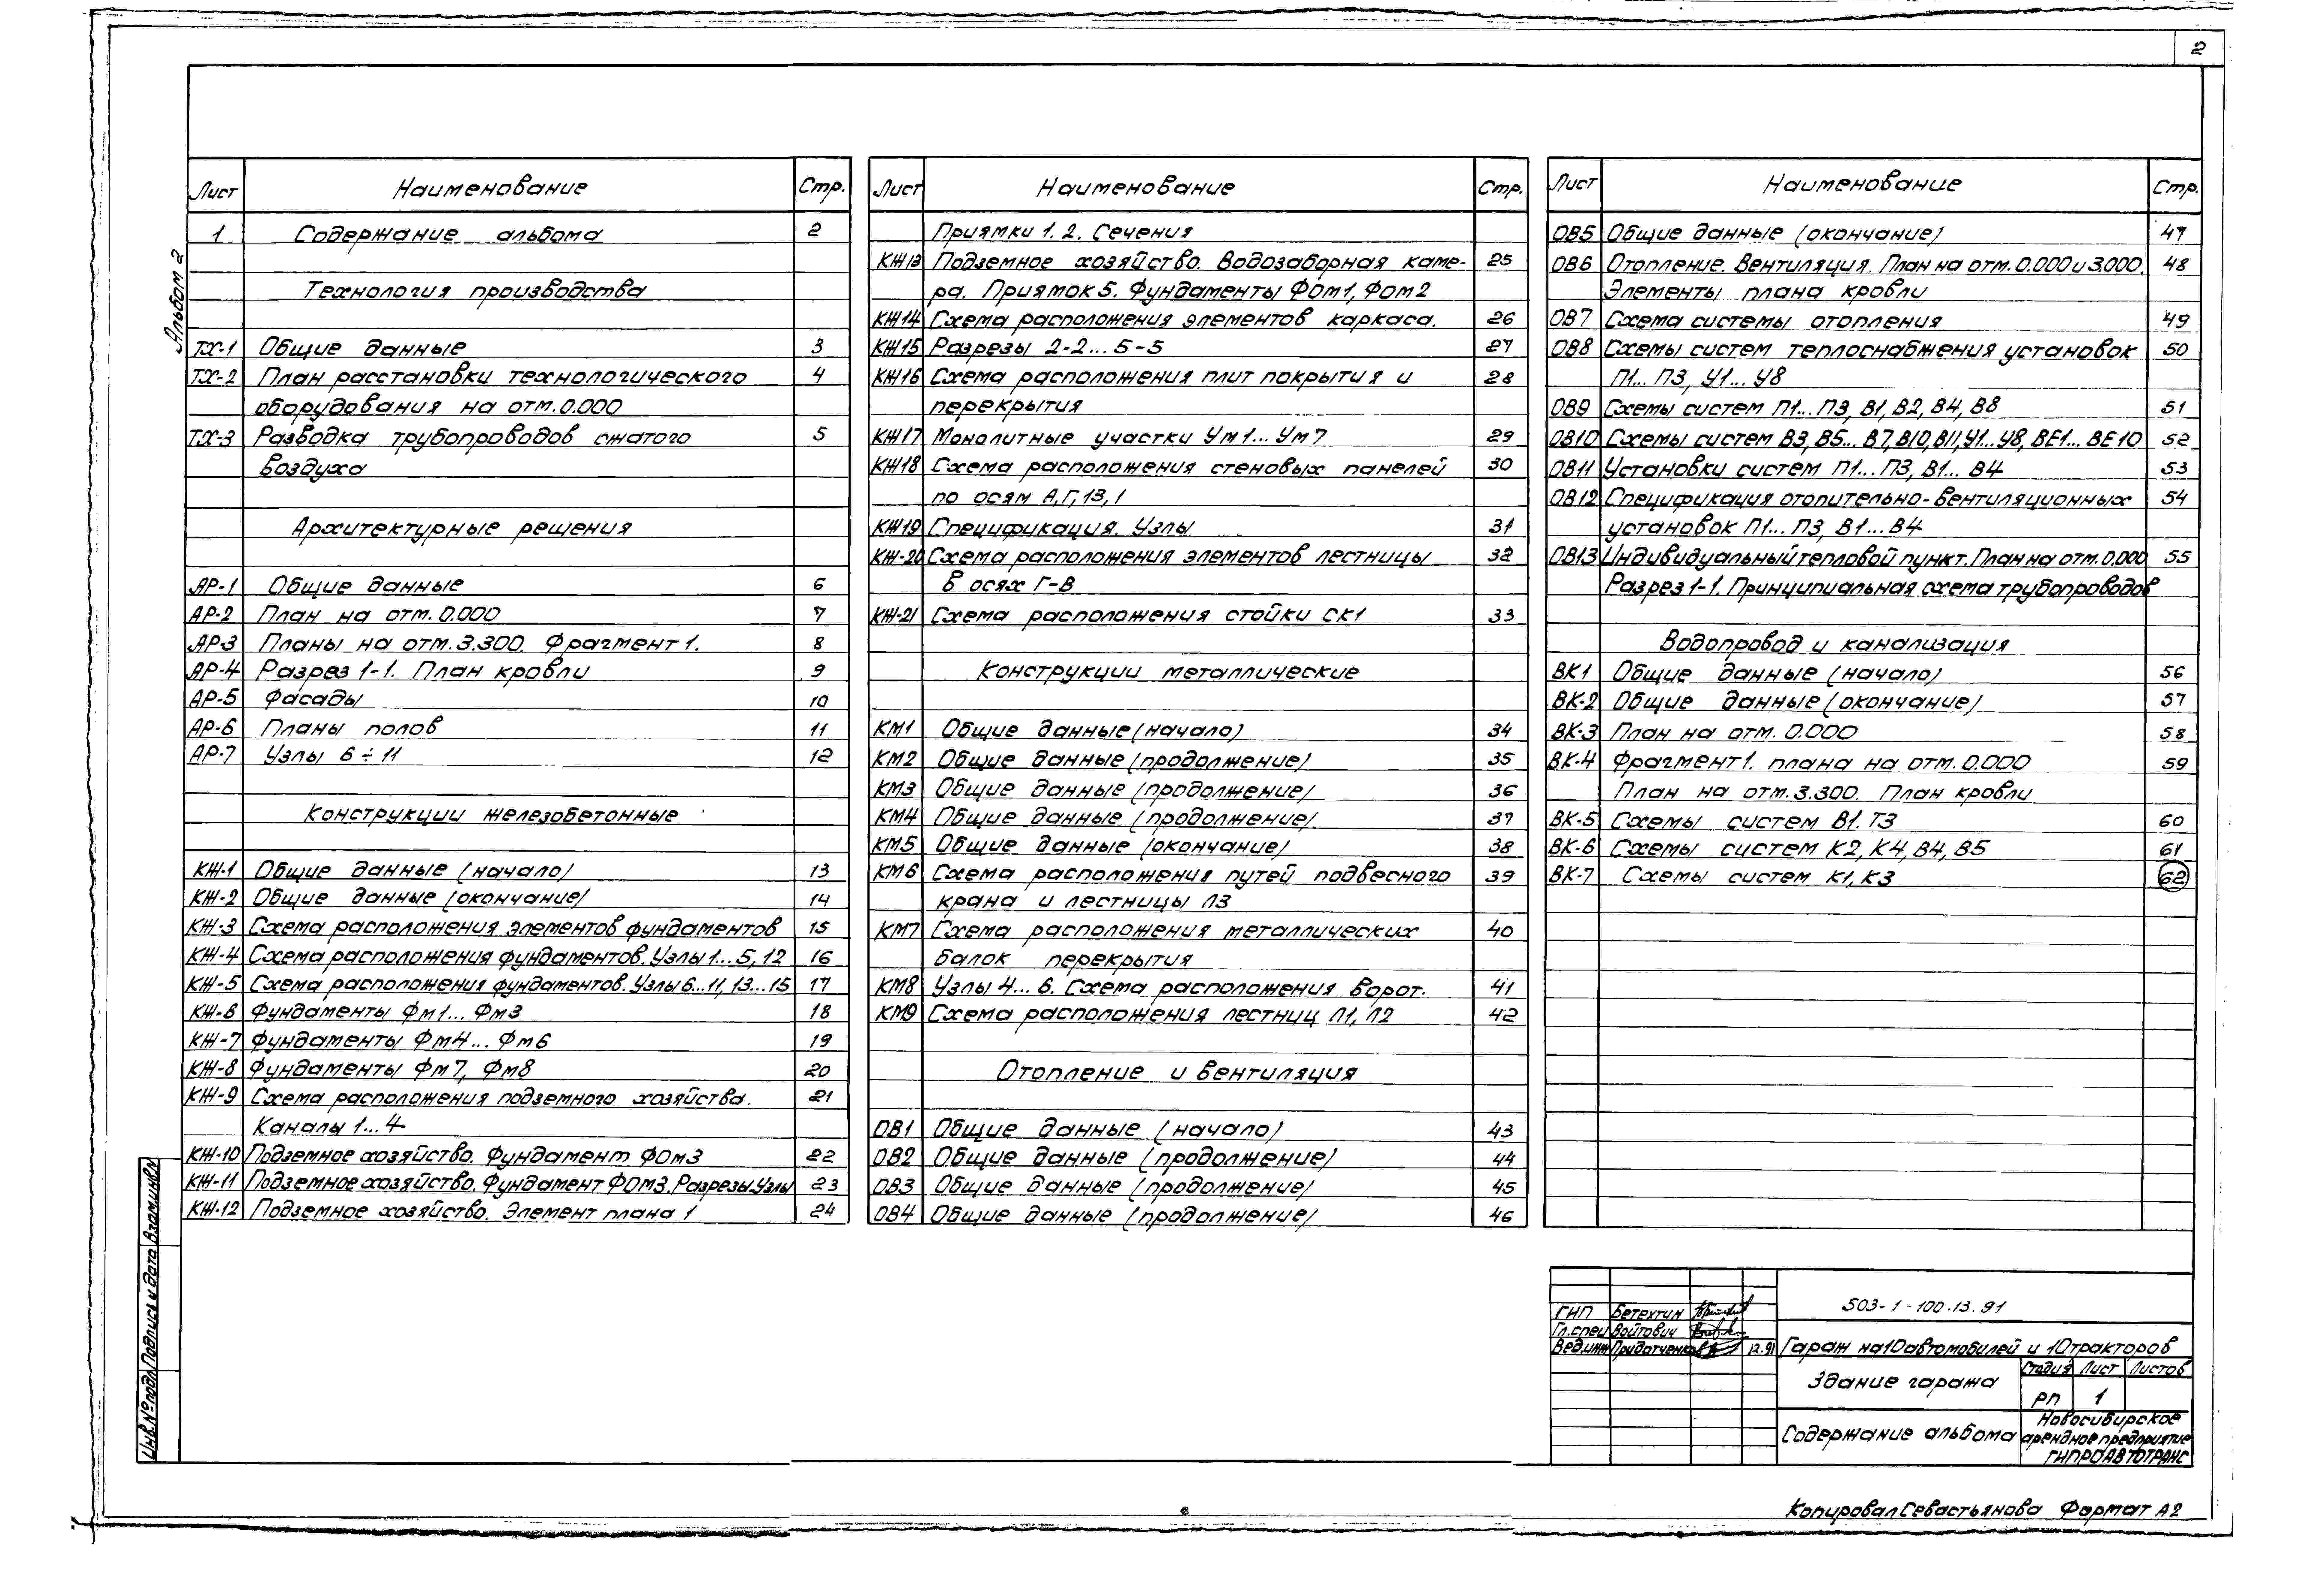 2
Альбом 2
Лист Наименование Стр.
1 Содержание альбома 2
Технология производства
ТХ-1 Общие данные 3
ТХ-2 План расстановки технологического 4
оборудования на отм. 0.000
ТХ-3 Разводка трубопроводов сжатого 5
воздуха
Архитектурные решения
АР-1 Общие данные 6
АР-2 План на отм. 0.000 7
АР-3 Планы на отм. 3.300. Фрагмент 1. 8
АР-4 Разрез 1-1. План кровли 9
АР-5 Фасады 10
АР-6 Планы полов 11
АР-7 Узлы 6÷11 12
Конструкции железобетонные
КЖ-1 Общие данные (начало) 13
КЖ-2 Общие данные (окончание) 14
КЖ-3 Схема расположения элементов фундаментов 15
КЖ-4 Схема расположения фундаментов. Узлы 1...5, 12 16
КЖ-5 Схема расположения фундаментов. Узлы 6...11, 13...15 17
КЖ-6 Фундаменты Фм1... Фм3 18
КЖ-7 Фундаменты Фм4... Фм6 19
КЖ-8 Фундаменты Фм7, Фм8 20
КЖ-9 Схема расположения подземного хозяйства. 21
Каналы 1...4
КЖ-10 Подземное хозяйство. Фундамент ФОм3 22
КЖ-11 Подземное хозяйство. Фундамент ФОм3. Разрезы. Узлы 23
КЖ-12 Подземное хозяйство. Элемент плана 1 24
Лист Наименование Стр.
Приямки 1. 2. Сечения
КЖ13 Подземное хозяйство. Водозаборная каме- 25
ра. Приямок 5. Фундаменты ФОм1, ФОм2
КЖ14 Схема расположения элементов каркаса. 26
КЖ15 Разрезы 2-2... 5-5 27
КЖ16 Схема расположения плит покрытия и 28
перекрытия
КЖ17 Монолитные участки Ум1... Ум7 29
КЖ18 Схема расположения стеновых панелей 30
по осям А, Г, 13, 1
КЖ19 Спецификация. Узлы 31
КЖ-20 Схема расположения элементов лестницы 32
в осях Г-В
КЖ-21 Схема расположения стойки СК1 33
Конструкции металлические
КМ1 Общие данные (начало) 34
КМ2 Общие данные (продолжение) 35
КМ3 Общие данные (продолжение) 36
КМ4 Общие данные (продолжение) 37
КМ5 Общие данные (окончание) 38
КМ6 Схема расположения путей подвесного 39
крана и лестницы Л3
КМ7 Схема расположения металлических 40
балок перекрытия
КМ8 Узлы 4... 6. Схема расположения ворот. 41
КМ9 Схема расположения лестниц Л1, Л2 42
Отопление и вентиляция
ОВ1 Общие данные (начало) 43
ОВ2 Общие данные (продолжение) 44
ОВ3 Общие данные (продолжение) 45
ОВ4 Общие данные (продолжение) 46
Лист Наименование Стр.
ОВ5 Общие данные (окончание) 47
ОВ6 Отопление. Вентиляция. План на отм. 0.000 и 3.000. 48
Элементы плана кровли
ОВ7 Схема системы отопления 49
ОВ8 Схемы систем теплоснабжения установок 50
П1... П3, У1... У8
ОВ9 Схемы систем П1... П3, В1, В2, В4, В8 51
ОВ10 Схемы систем В3, В5... В7, В10, В11, У1... У8, ВЕ1... ВЕ10 52
ОВ11 Установки систем П1... П3, В1... В4 53
ОВ12 Спецификация отопительно-вентиляционных 54
установок П1... П3, В1... В4
ОВ13 Индивидуальный тепловой пункт. План на отм. 0.000 55
Разрез 1-1. Принципиальная схема трубопроводов
Водопровод и канализация
ВК1 Общие данные (начало) 56
ВК-2 Общие данные (окончание) 57
ВК-3 План на отм. 0.000 58
ВК-4 Фрагмент 1. плана на отм. 0.000 59
План на отм. 3.300. План кровли
ВК-5 Схемы систем В1. Т3 60
ВК-6 Схемы систем К2, К4, В4, В5 61
ВК-7 Схемы систем К1, К3 62
Инв.№подл Подпись и дата Взам.инв.N
503-1-100.13.91
ГИП Бетехтин
Гл.спец Войтович
Вед.инж Придатченко 12.91 Гараж на 10 автомобилей и 10 тракторов
Здание гаража
Стадия Лист Листов
РП 1
Содержание альбома
Новосибирское
арендное предприятие
ГИПРОАВТОТРАНС
Копировал Севастьянова Формат А2